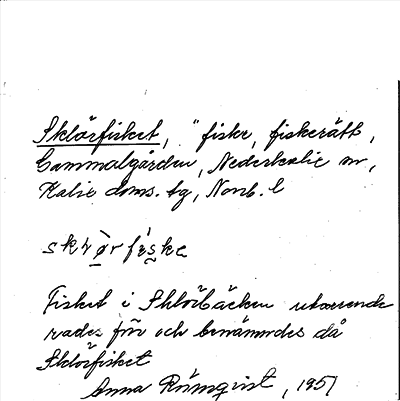 Sklörfisket, "fiske, fiskerätt,
Gammalgården, Nederkalix nr,
Kalix doms. tg, Norrb. l
Fisket i Sklörbäcken utarrende
rades förr och benämndes då
Sklörfisket
Anna Römqvist, 1957